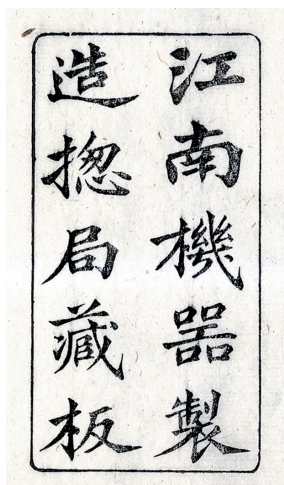 江南機器製
造揔局藏板